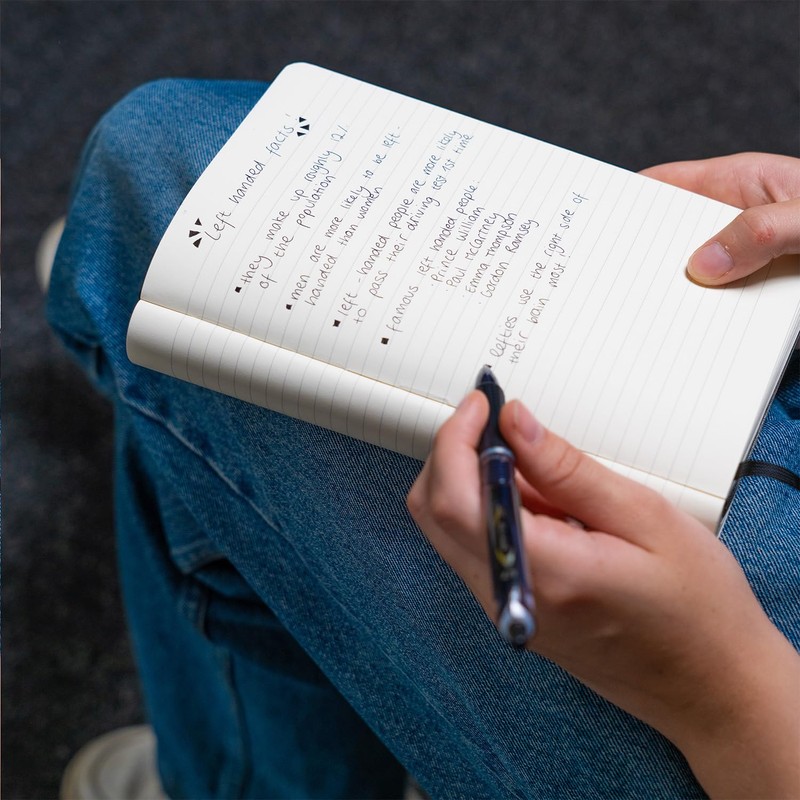 'Left handed facts'
▪ they make up roughly 12%
of the population
▪ men are more likely to be left-
handed than women
▪ left-handed people are more likely
to pass their driving test 1st time
▪ famous left handed people:
· Prince William
· Paul McCartney
· Emma Thompson
· Gordon Ramsey
▪ lefties use the right side of
their brain most!